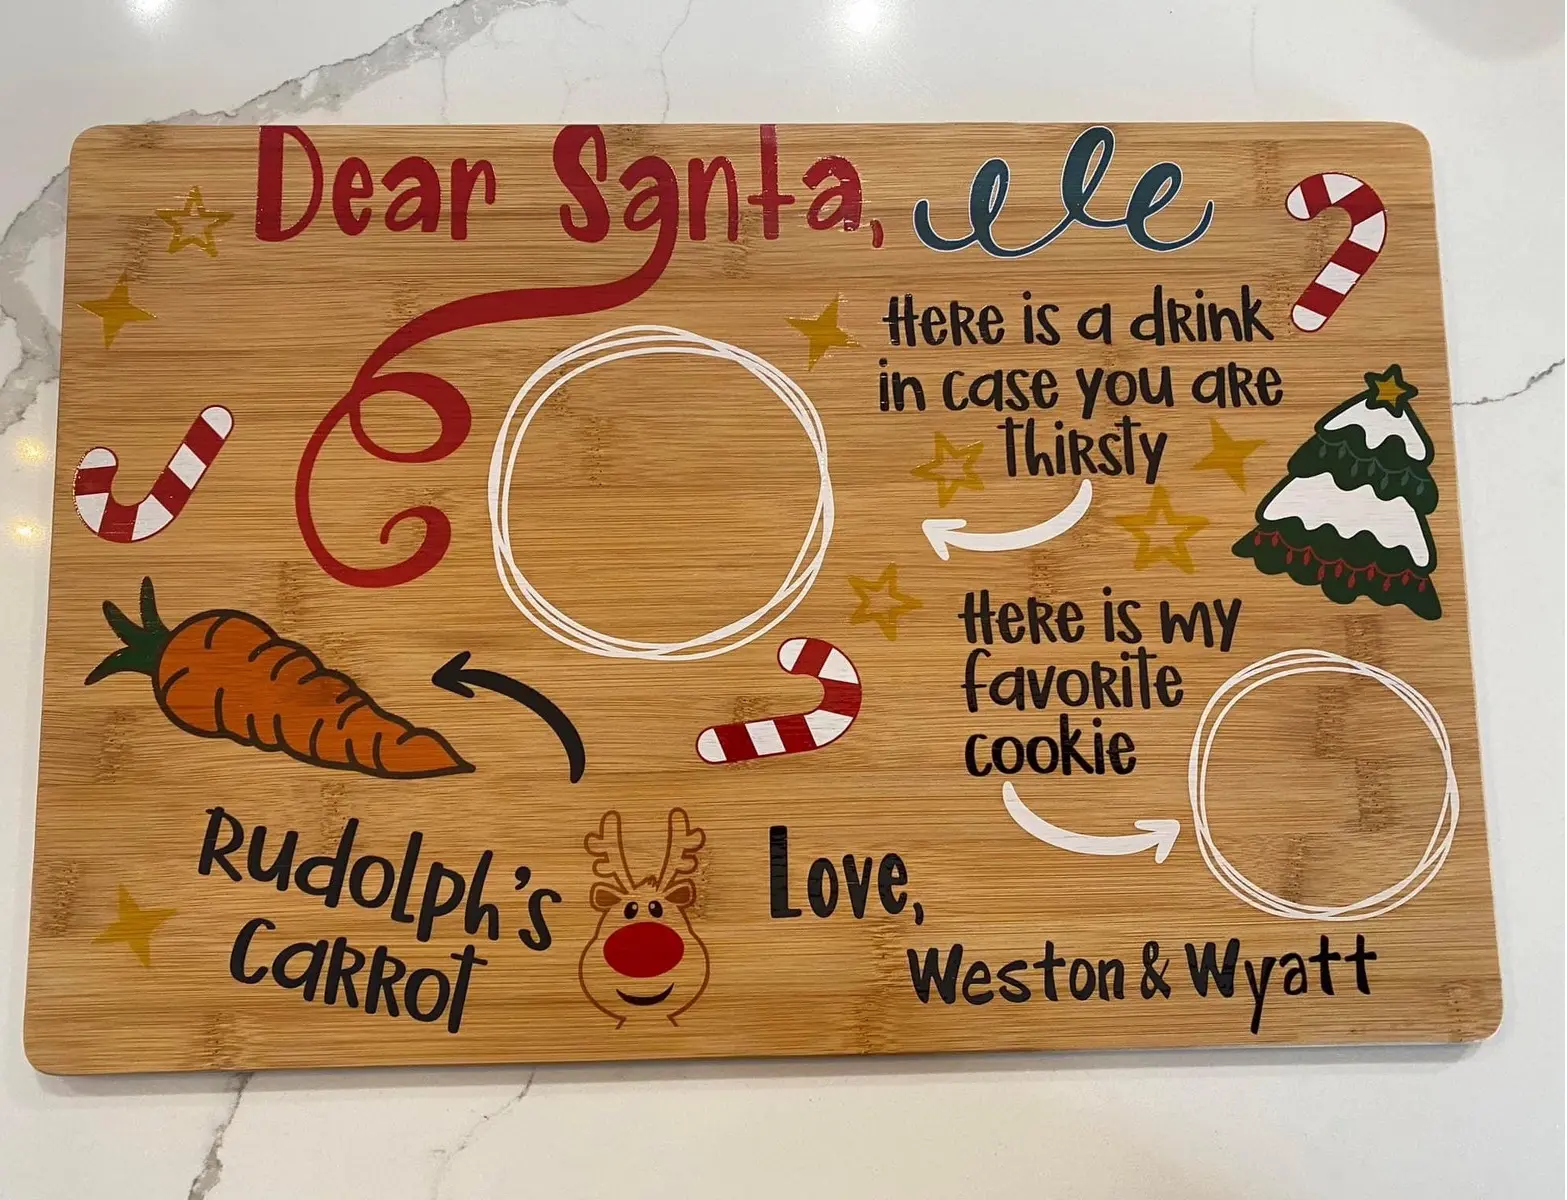 Dear Santa,
Here is a drink
in case you are
Thirsty
Here is my
favorite
cookie
Rudolph's
Carrot
Love,
Weston & Wyatt